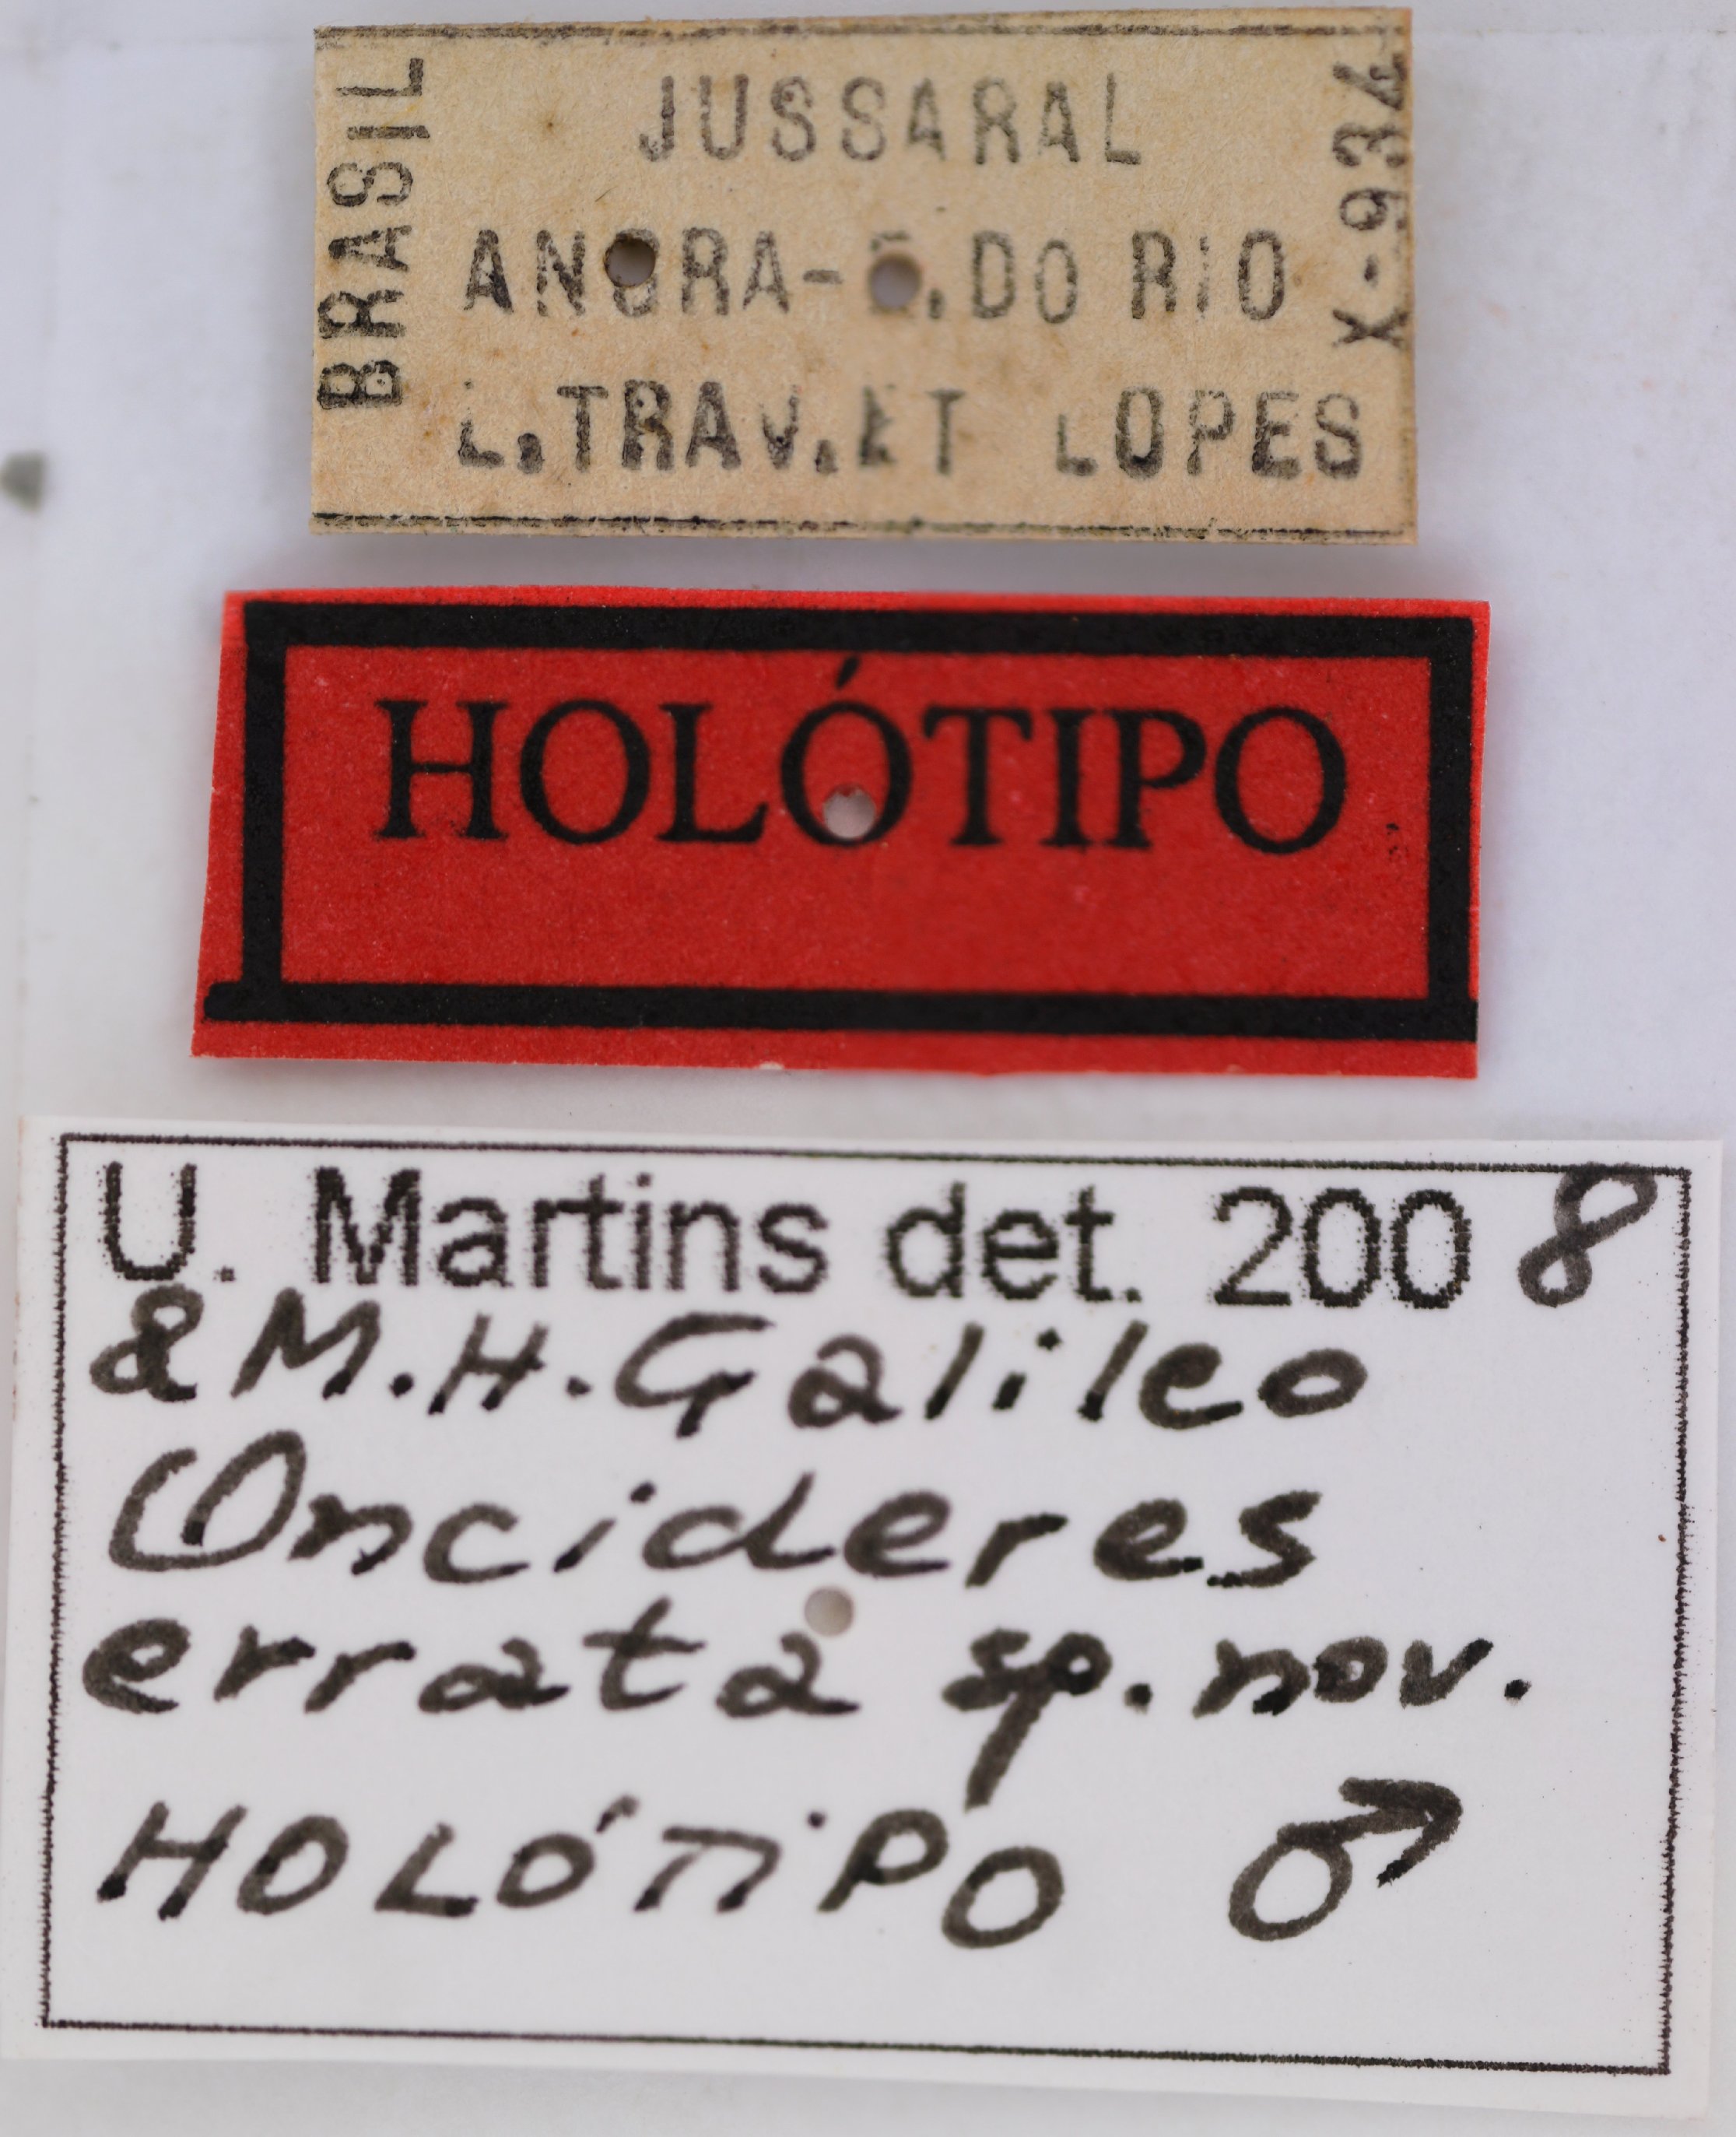 BRASIL
JUSSARAL
ANGRA-E.DO RIO
L.TRAV.ET LOPES
X-934
HOLÓTIPO
U. Martins det. 2008
& M.H. Galileo
Oncideres
errata sp. nov.
HOLÓTIPO ♂